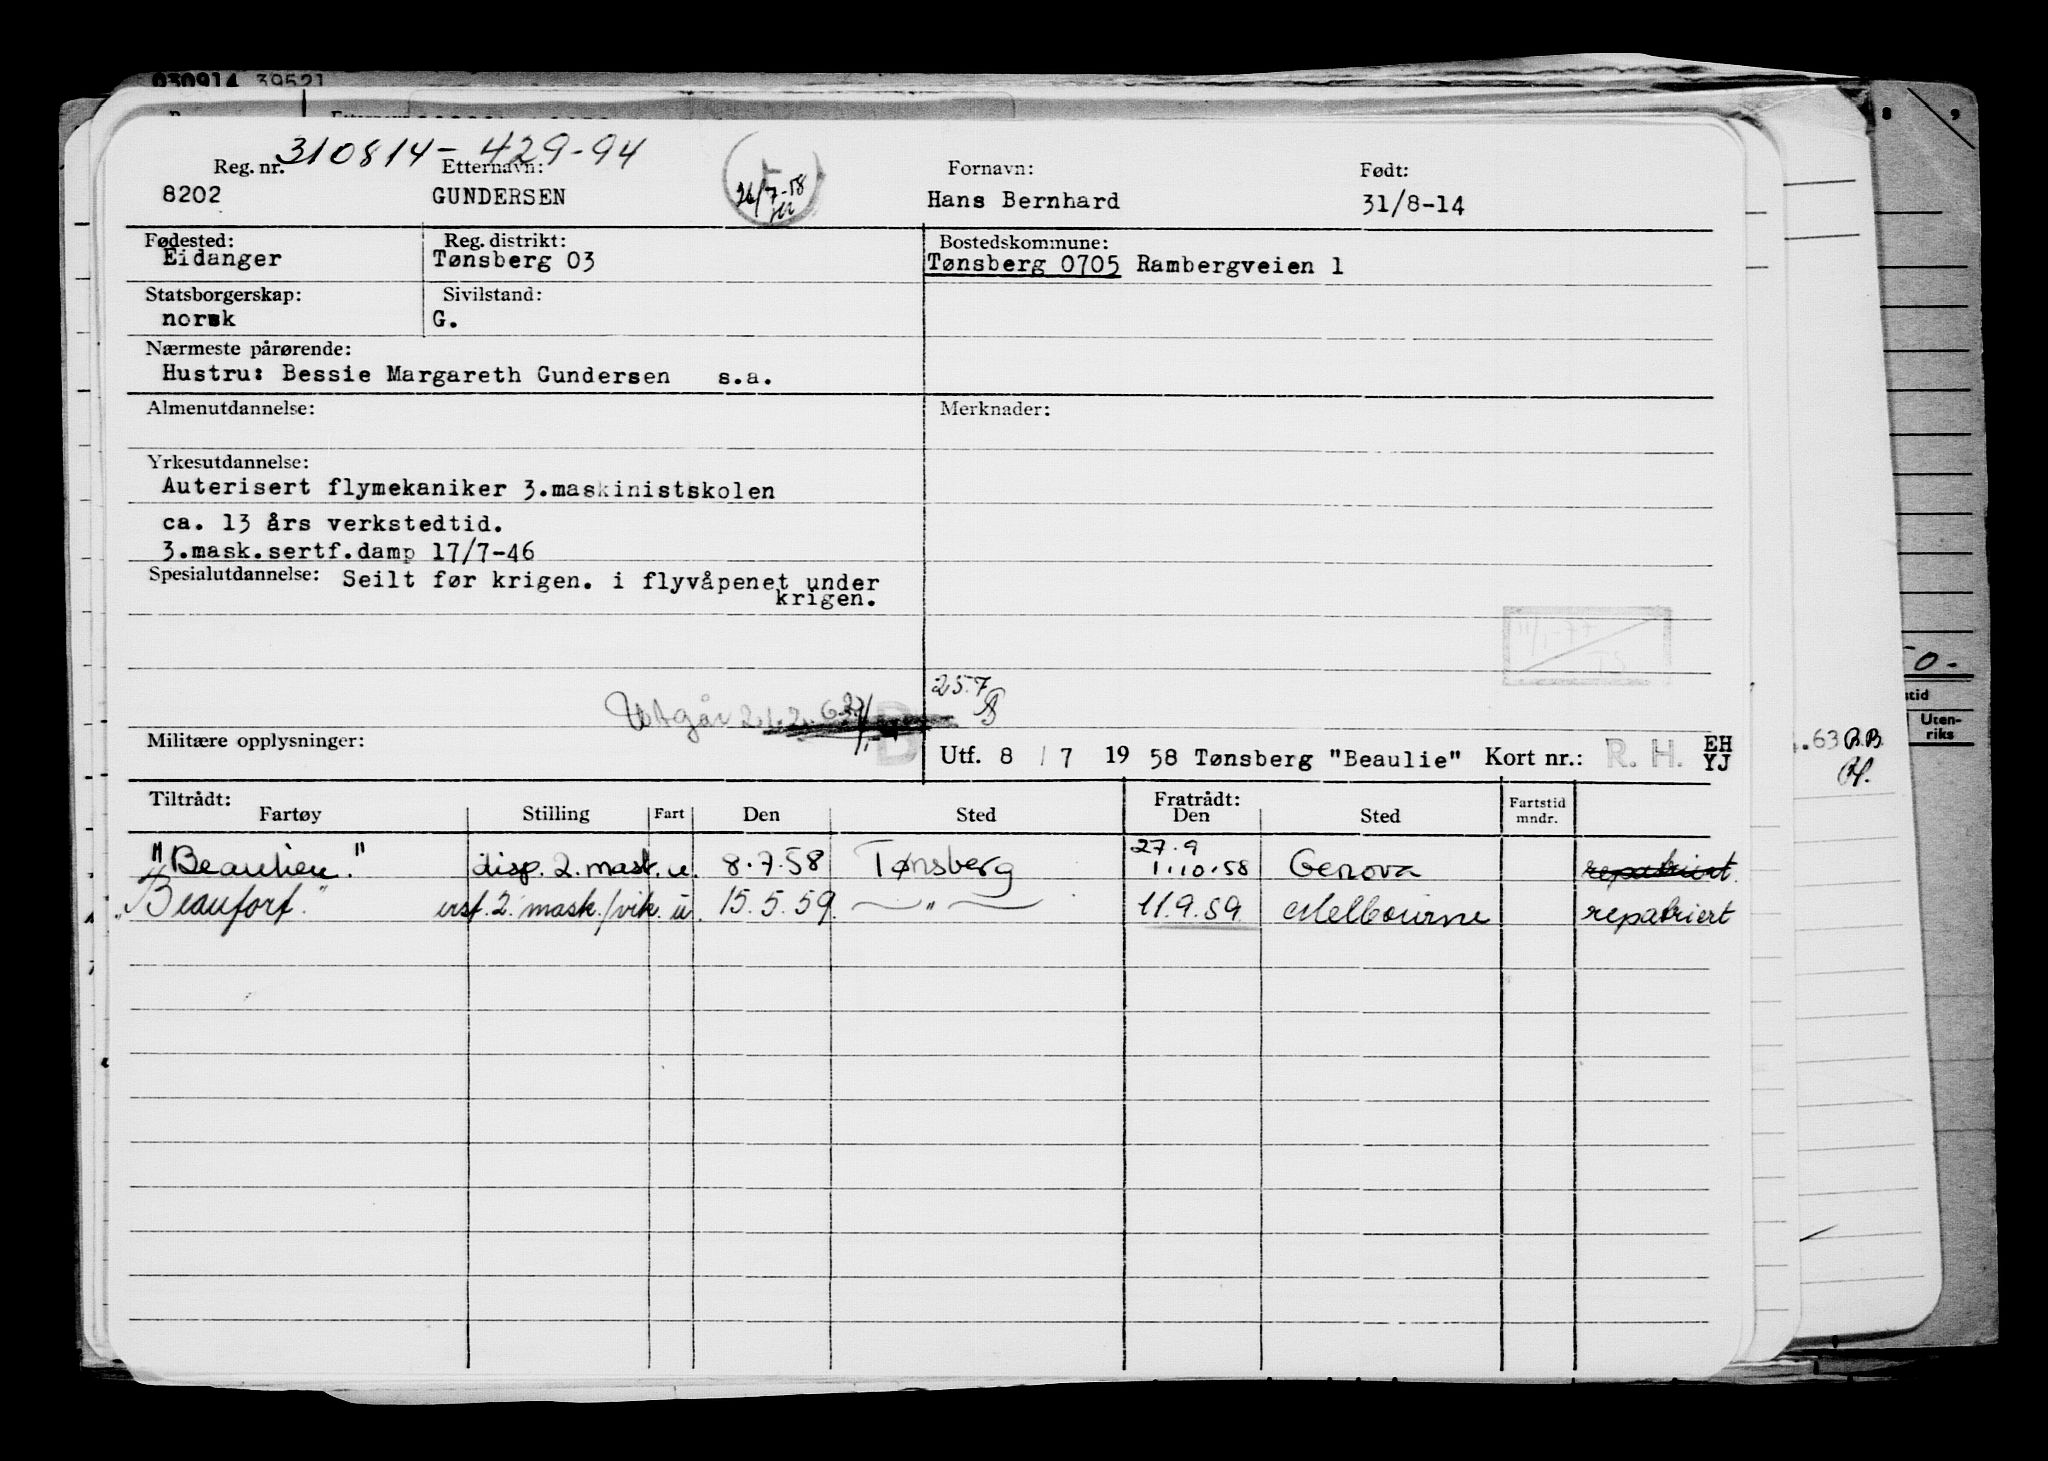 030914 39521
310814-429-94
Reg. nr. Etternavn: Fornavn: Født:
8202 GUNDERSEN 26/7-58 Hans Bernhard 31/8-14
Fødested: Reg. distrikt: Bostedskommune:
Eidanger Tønsberg 03 Tønsberg 0705 Rambergveien 1
Statsborgerskap: Sivilstand:
norsk G.
Nærmeste pårørende:
Hustru: Bessie Margareth Gundersen s.a.
Almenutdannelse: Merknader:
Yrkesutdannelse:
Auterisert flymekaniker 3.maskinistskolen
ca. 13 års verkstedtid.
3.mask.sertf.damp 17/7-46
Spesialutdannelse: Seilt før krigen. i flyvåpenet under
krigen.
Utgår
257
Militære opplysninger: B Utf. 8 / 7 19 58 Tønsberg "Beaulie" Kort nr.: R. H. EH
YJ
Tiltrådt: Fratrådt:
Fartøy Stilling Fart Den Sted Den Sted Fartstid mndr.
27.9
"Beaulieu." disp. 2. mask. u. 8.7.58 Tønsberg 1.10.58 Genova repatriert.
"Beaufort" erst. 2. mask./vik. u. 15.5.59. — " — 11.9.59 Melbourne repatriert
8 9
50-
stid
Uten-
riks
.63 B.B.